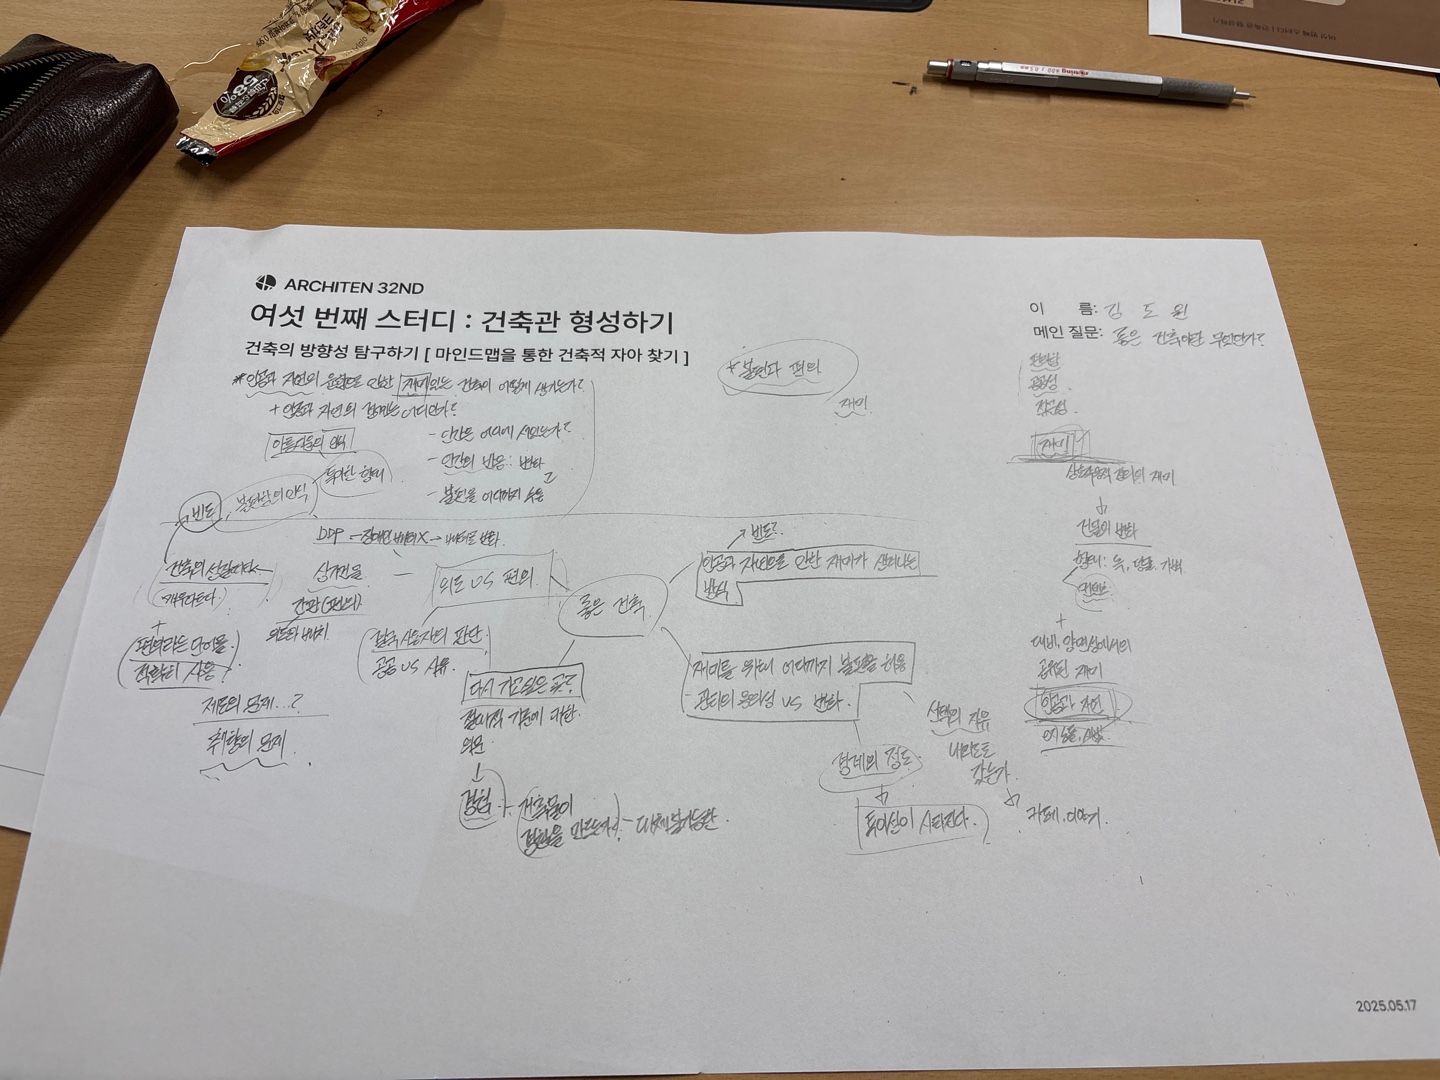 ARCHITEN 32ND
여섯 번째 스터디 : 건축관 형성하기
건축의 방향성 탐구하기 [ 마인드맵을 통한 건축적 자아 찾기 ]
이 름: 김 도 원
메인 질문: 좋은 건축이란 무엇인가?
*인공과 자연의 융합으로 인한 재미있는 건축이 어떻게 생기는가?
+ 인공과 자연의 경계는 어디인가?
아름다움의 인식
- 인간은 어디에 서있는가?
- 인간의 반응: 변화
- 불편을 어디까지 수용
특이한 형태
불편함의 인식
빈도
*불편과 편의
재미
편리함
공공성
작품성
재미
상호작용적 관점의 재미
건물의 변화
형태: 녹, 덩쿨, 기후
자연
+
대비, 양면성에서의
공유된 재미
인공과 자연
DDP - 장애인 배려X → 배려로 변화.
건축의 상실이다
(깨우다르다)
+
편의라는 단어를
정확히 사용?
제도의 문제...?
취향의 문제
상가건물
간판(편의)
의도와 배치
의도 VS 편의
결국 사용자의 판단
공공 VS 사유.
좋은 건축
빈도?
인공과 자연으로 인한 재미가 생겨나는
방식
다시 가고싶은 곳?
절대적 기준에 대한
의문
경험
건축물이
경험을 만드는가?
대체불가능한
재미를 위해 어디까지 불편을 허용
- 관리의 용이성 VS 변화.
경계의 정도
높이선이 사라진다.
선택의 자유
내외도로
갔는가.
카페, 이야기.
2025.05.17